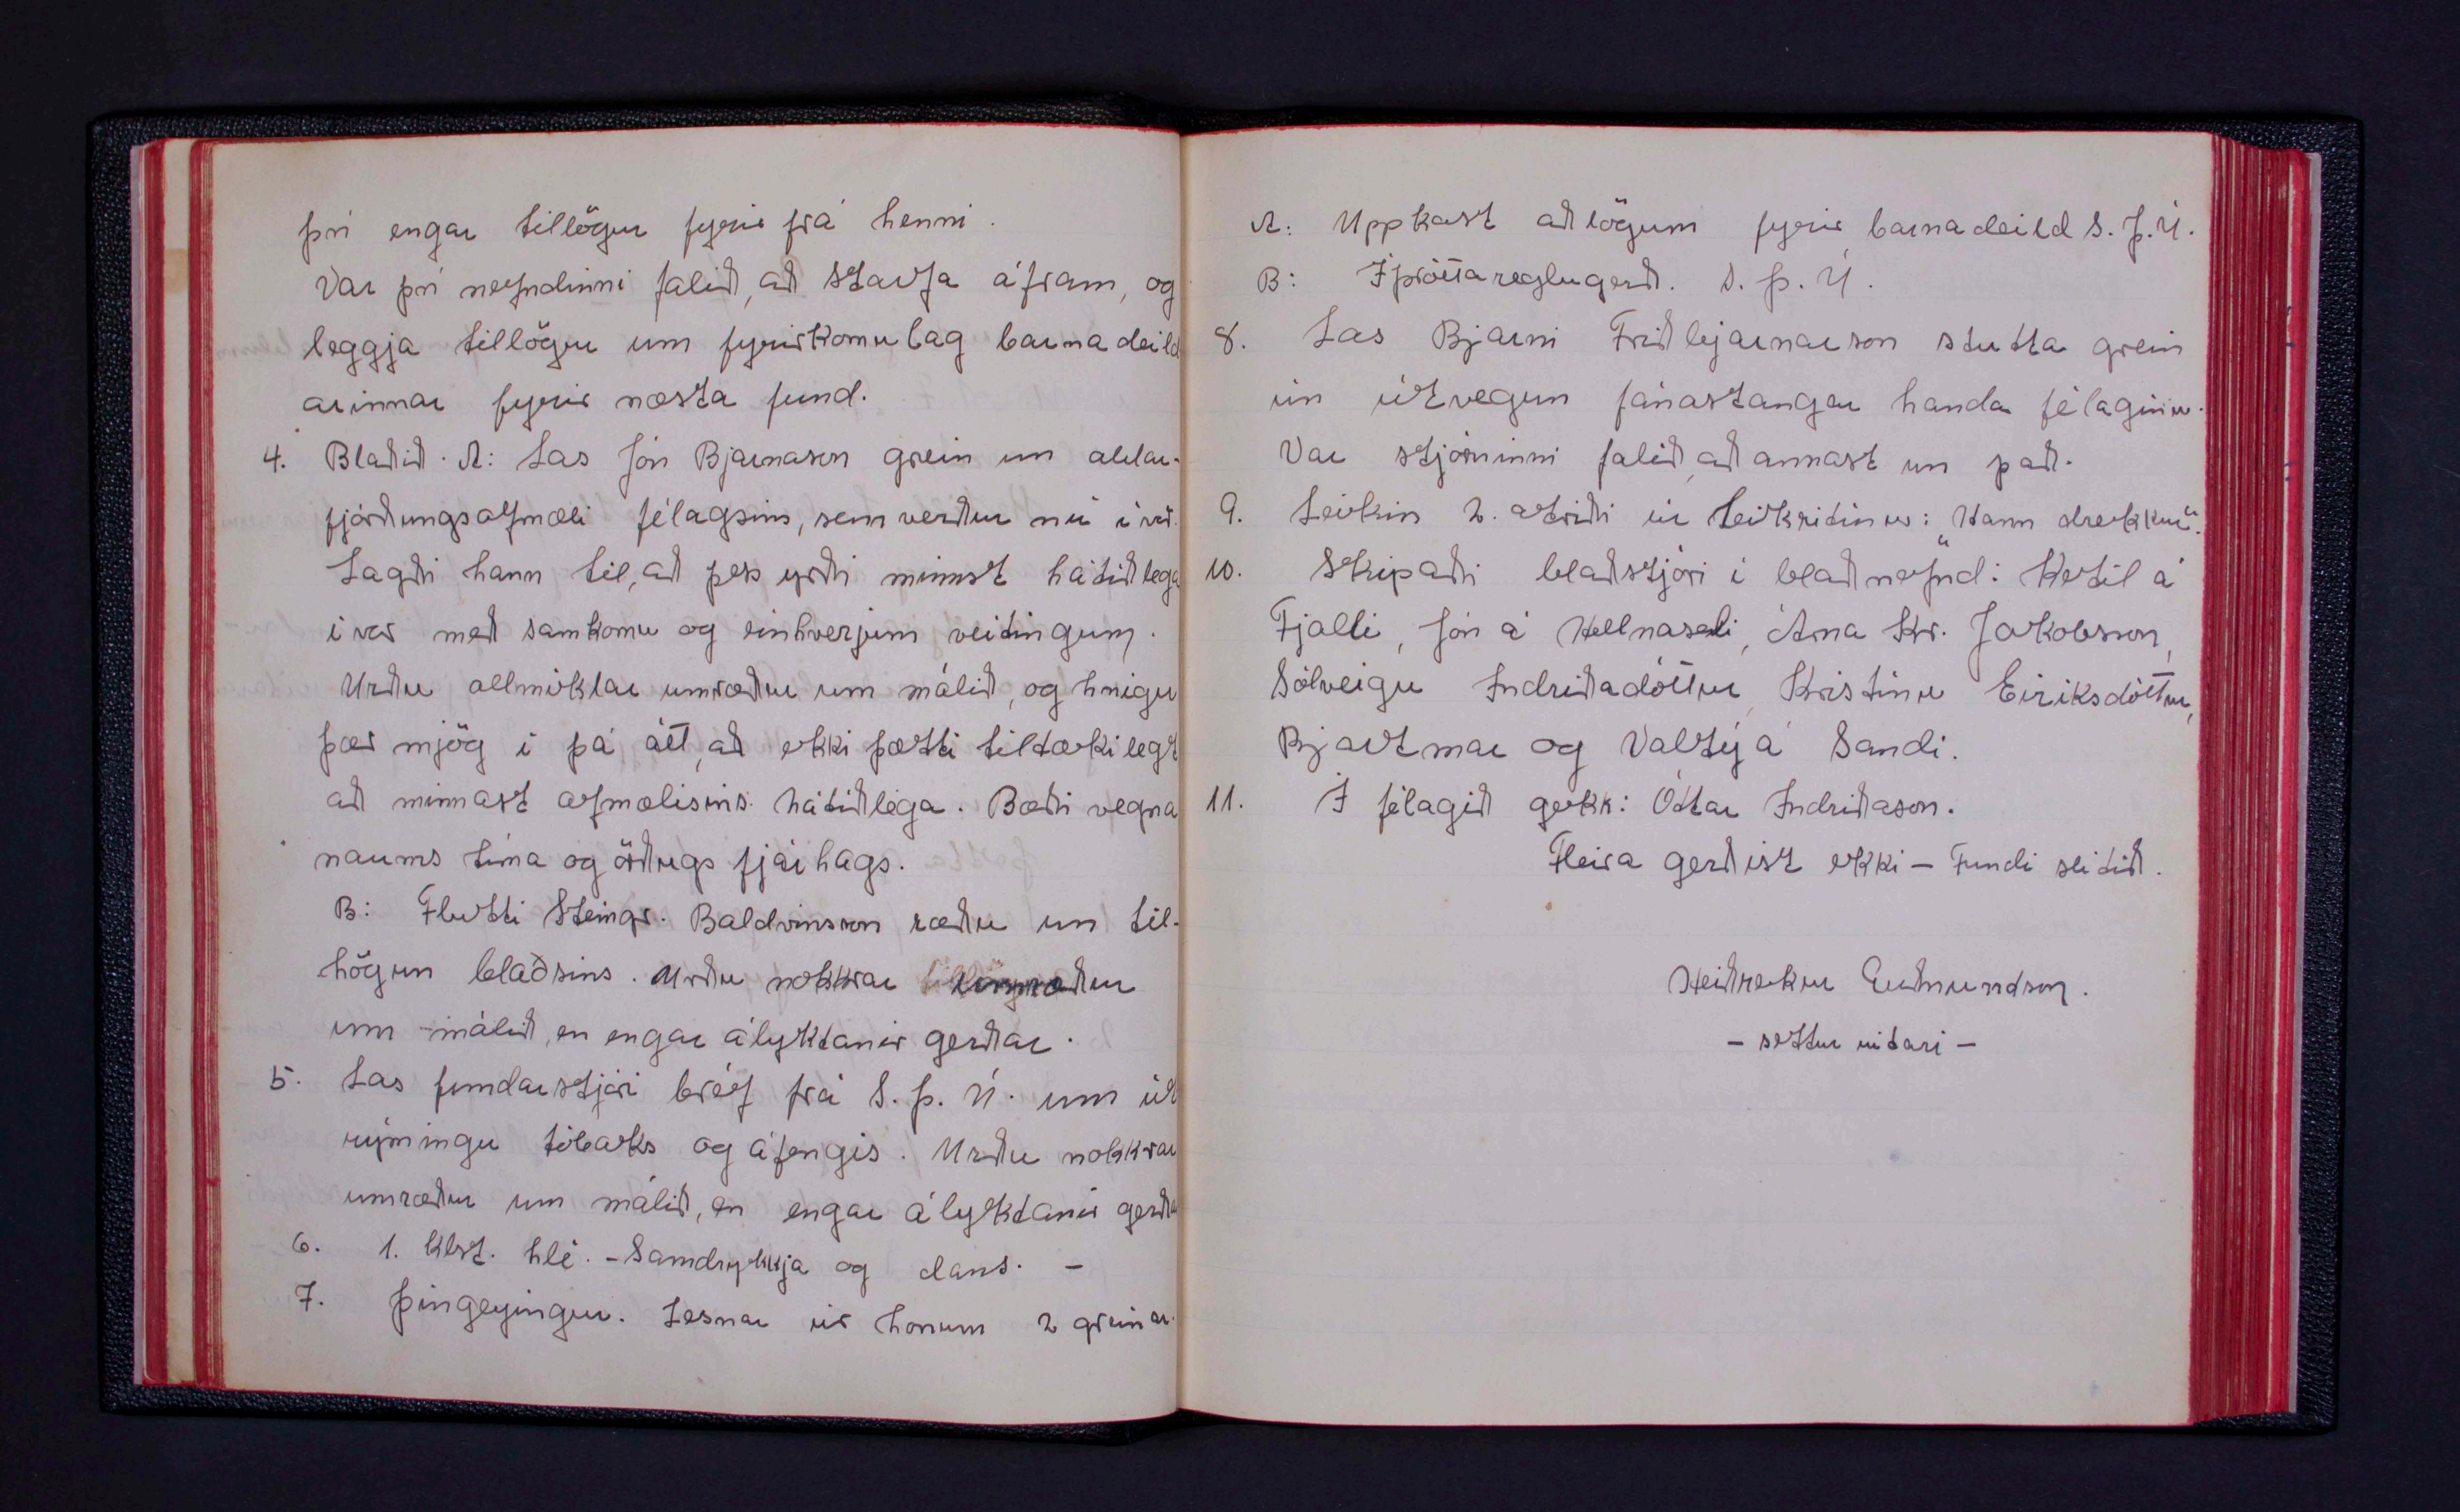 því engar tillögur fyrir frá henni.
Var því nefndinni falið, að starfa áfram, og
leggja tillögur um fyrirkomulag barnadeild
arinnar fyrir næsta fund.
4. Blaðið. A: Las Jón Bjarnason grein um aldar-
fjórðungsafmæli félagsins, sem verður nú í vor.
Lagði hann til, að þess yrði minnst hátíðlega
í vor með samkomu og einhverjum veitingum.
Urðu allmiklar umræður um málið, og hnigu
þær mjög í þá átt, að ekki þætti tiltækilegt
að minnast afmælisins hátíðlega. Bæði vegna
naums tíma og örðugs fjárhags.
B: Flutti Steingr. Baldvinsson ræðu um til-
högun blaðsins. Urðu nokkrar umræður
um málið, en engar ályktanir gerðar.
5. Las fundarstjóri bréf frá S. Þ. U. um út
rýmingu tóbaks og áfengis. Urðu nokkrar
umræður um málið, en engar ályktanir gerða
6. 1. klst. hlé. - Samdrykkja og dans. -
7. Þingeyingur. Lesnar úr honum 2 greinar.
A: Uppkast að lögum fyrir barnadeild S. Þ. U.
B: Íþróttareglugerð. S. Þ. U.
8. Las Bjarni Friðbjarnarson stutta grein
um útvegun fánastangar handa félaginu.
Var stjórninni falið, að annast um það.
9. Leikin 2. atriði úr leikritinu: "Hann drekkur".
10. Skipaði blaðstjóri í blaðnefnd: Ketil á
Fjalli, Jón á Hellnaseli, Árna Kr. Jakobsson,
Sólveigu Indriðadóttur, Kristínu Eiríksdóttur,
Bjartmar og Valtý á Sandi.
11. Í félagið gekk: Óttar Indriðason.
Fleira gerðist ekki - Fundi slitið.
Heiðrekur Guðmundson.
- settur ritari -